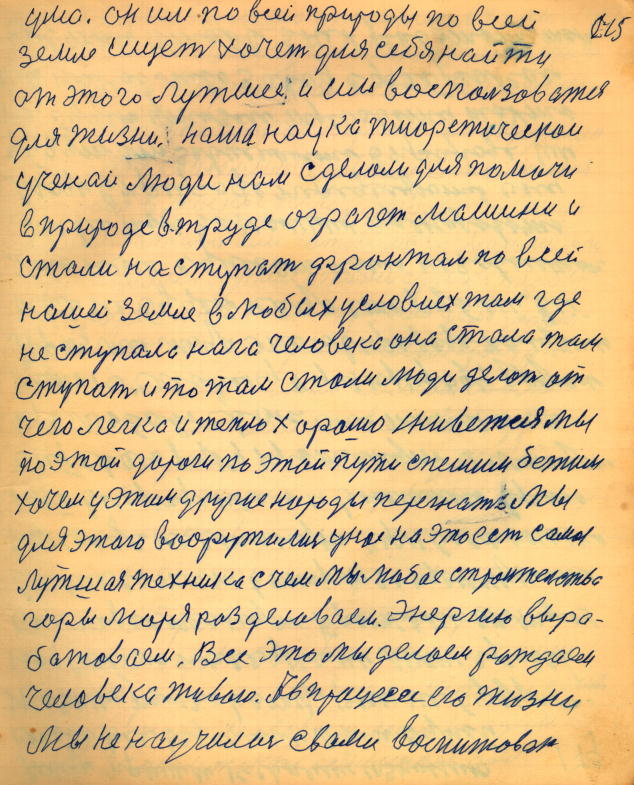 ума. он им по всей природы по всей 215
земле ищет хочет для себя найти
от этого лутшее и им воспользоватся
для жизни. наша наука тиоретическои
ученаи люди нам сделоли для помочи
в природе в труде ограет машини и
стали наступат фронтам по всей
нашей земле в любых условиех там где
не ступала нага человека она стала там
ступат и то там стали люди делот от
чего легка и тепло хорашо живется мы
по этой дороги по этой пути спешим бежим
хочем у этом другие народы перегнать. мы
для этого вооружилис у нас на это ест самая
лутшая техника с чем мы любое строителства
горы моря розделоваем. Энергию выра-
батоваем. Все это мы делоем рождаем
человека живого. А в процесси его жизни
мы не научилис с вами воспитоват